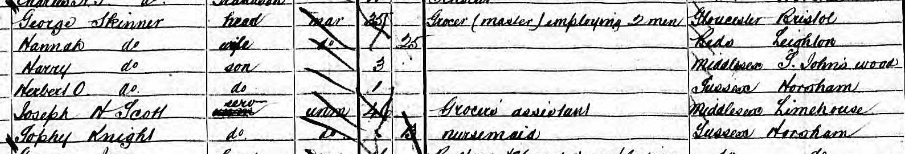 George Skinner head mar 35 Grocer (master) employing 2 men Gloucester Bristol
Hannah do wife do 25 Beds Leighton
Harry do son 3 Middlesex S. John's wood
Herbert O. do. do 1 Sussex Horsham
Joseph H Scott serv unm Grocers assistant Middlesex Limehouse
Sophy Knight do do 13 nursemaid Sussex Horsham